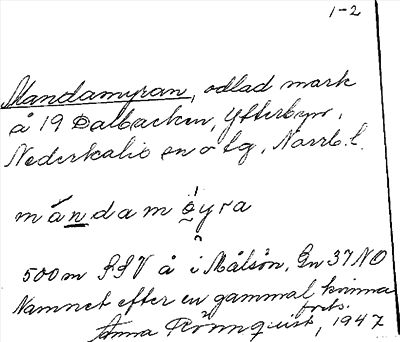 1-2
Mandamyran, odlad mark
å 19 Dalbacken, Ytterbyn,
Nederkalix sn o tg, Norrb. l.
mándamo̱yra
500m SSV å i Målsön. Gn 37 NO
Namnet efter en gammal kvinna
forts.
Anna Rönnquist, 1947